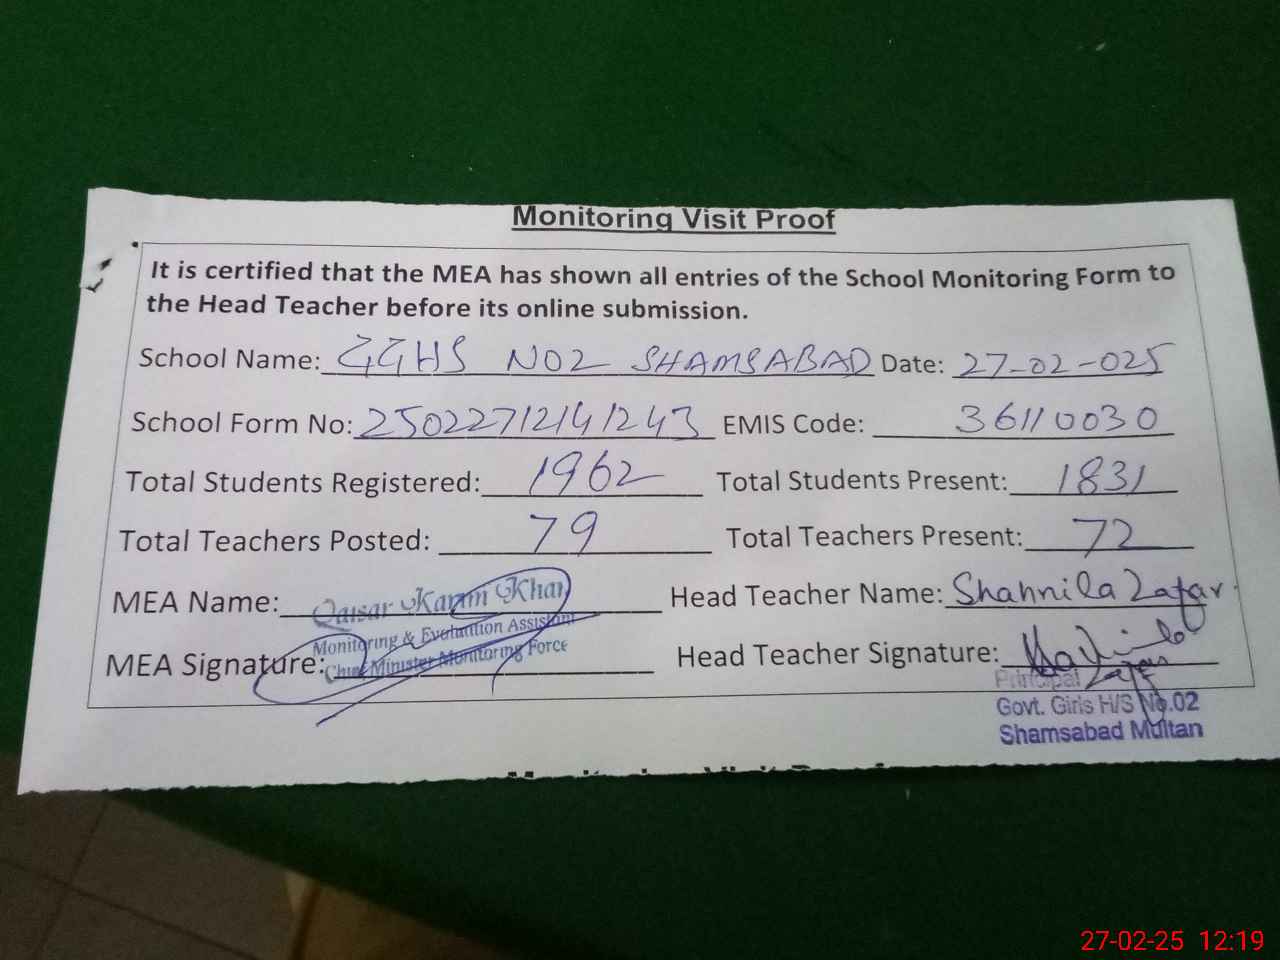 Monitoring Visit Proof
It is certified that the MEA has shown all entries of the School Monitoring Form to
the Head Teacher before its online submission.
School Name: GGHS NO2 SHAMSABAD Date: 27-02-025
School Form No: 25022712141243 EMIS Code: 36110030
Total Students Registered: 1962 Total Students Present: 1831
Total Teachers Posted: 79 Total Teachers Present: 72
MEA Name: Qaisar Karim Khan Head Teacher Name: Shahnila Zafar
Monitoring & Evaluation Assistant
MEA Signature: Chief Minister Monitoring Force Head Teacher Signature:
Principal
Govt. Girls H/S No.02
Shamsabad Multan
27-02-25 12:19